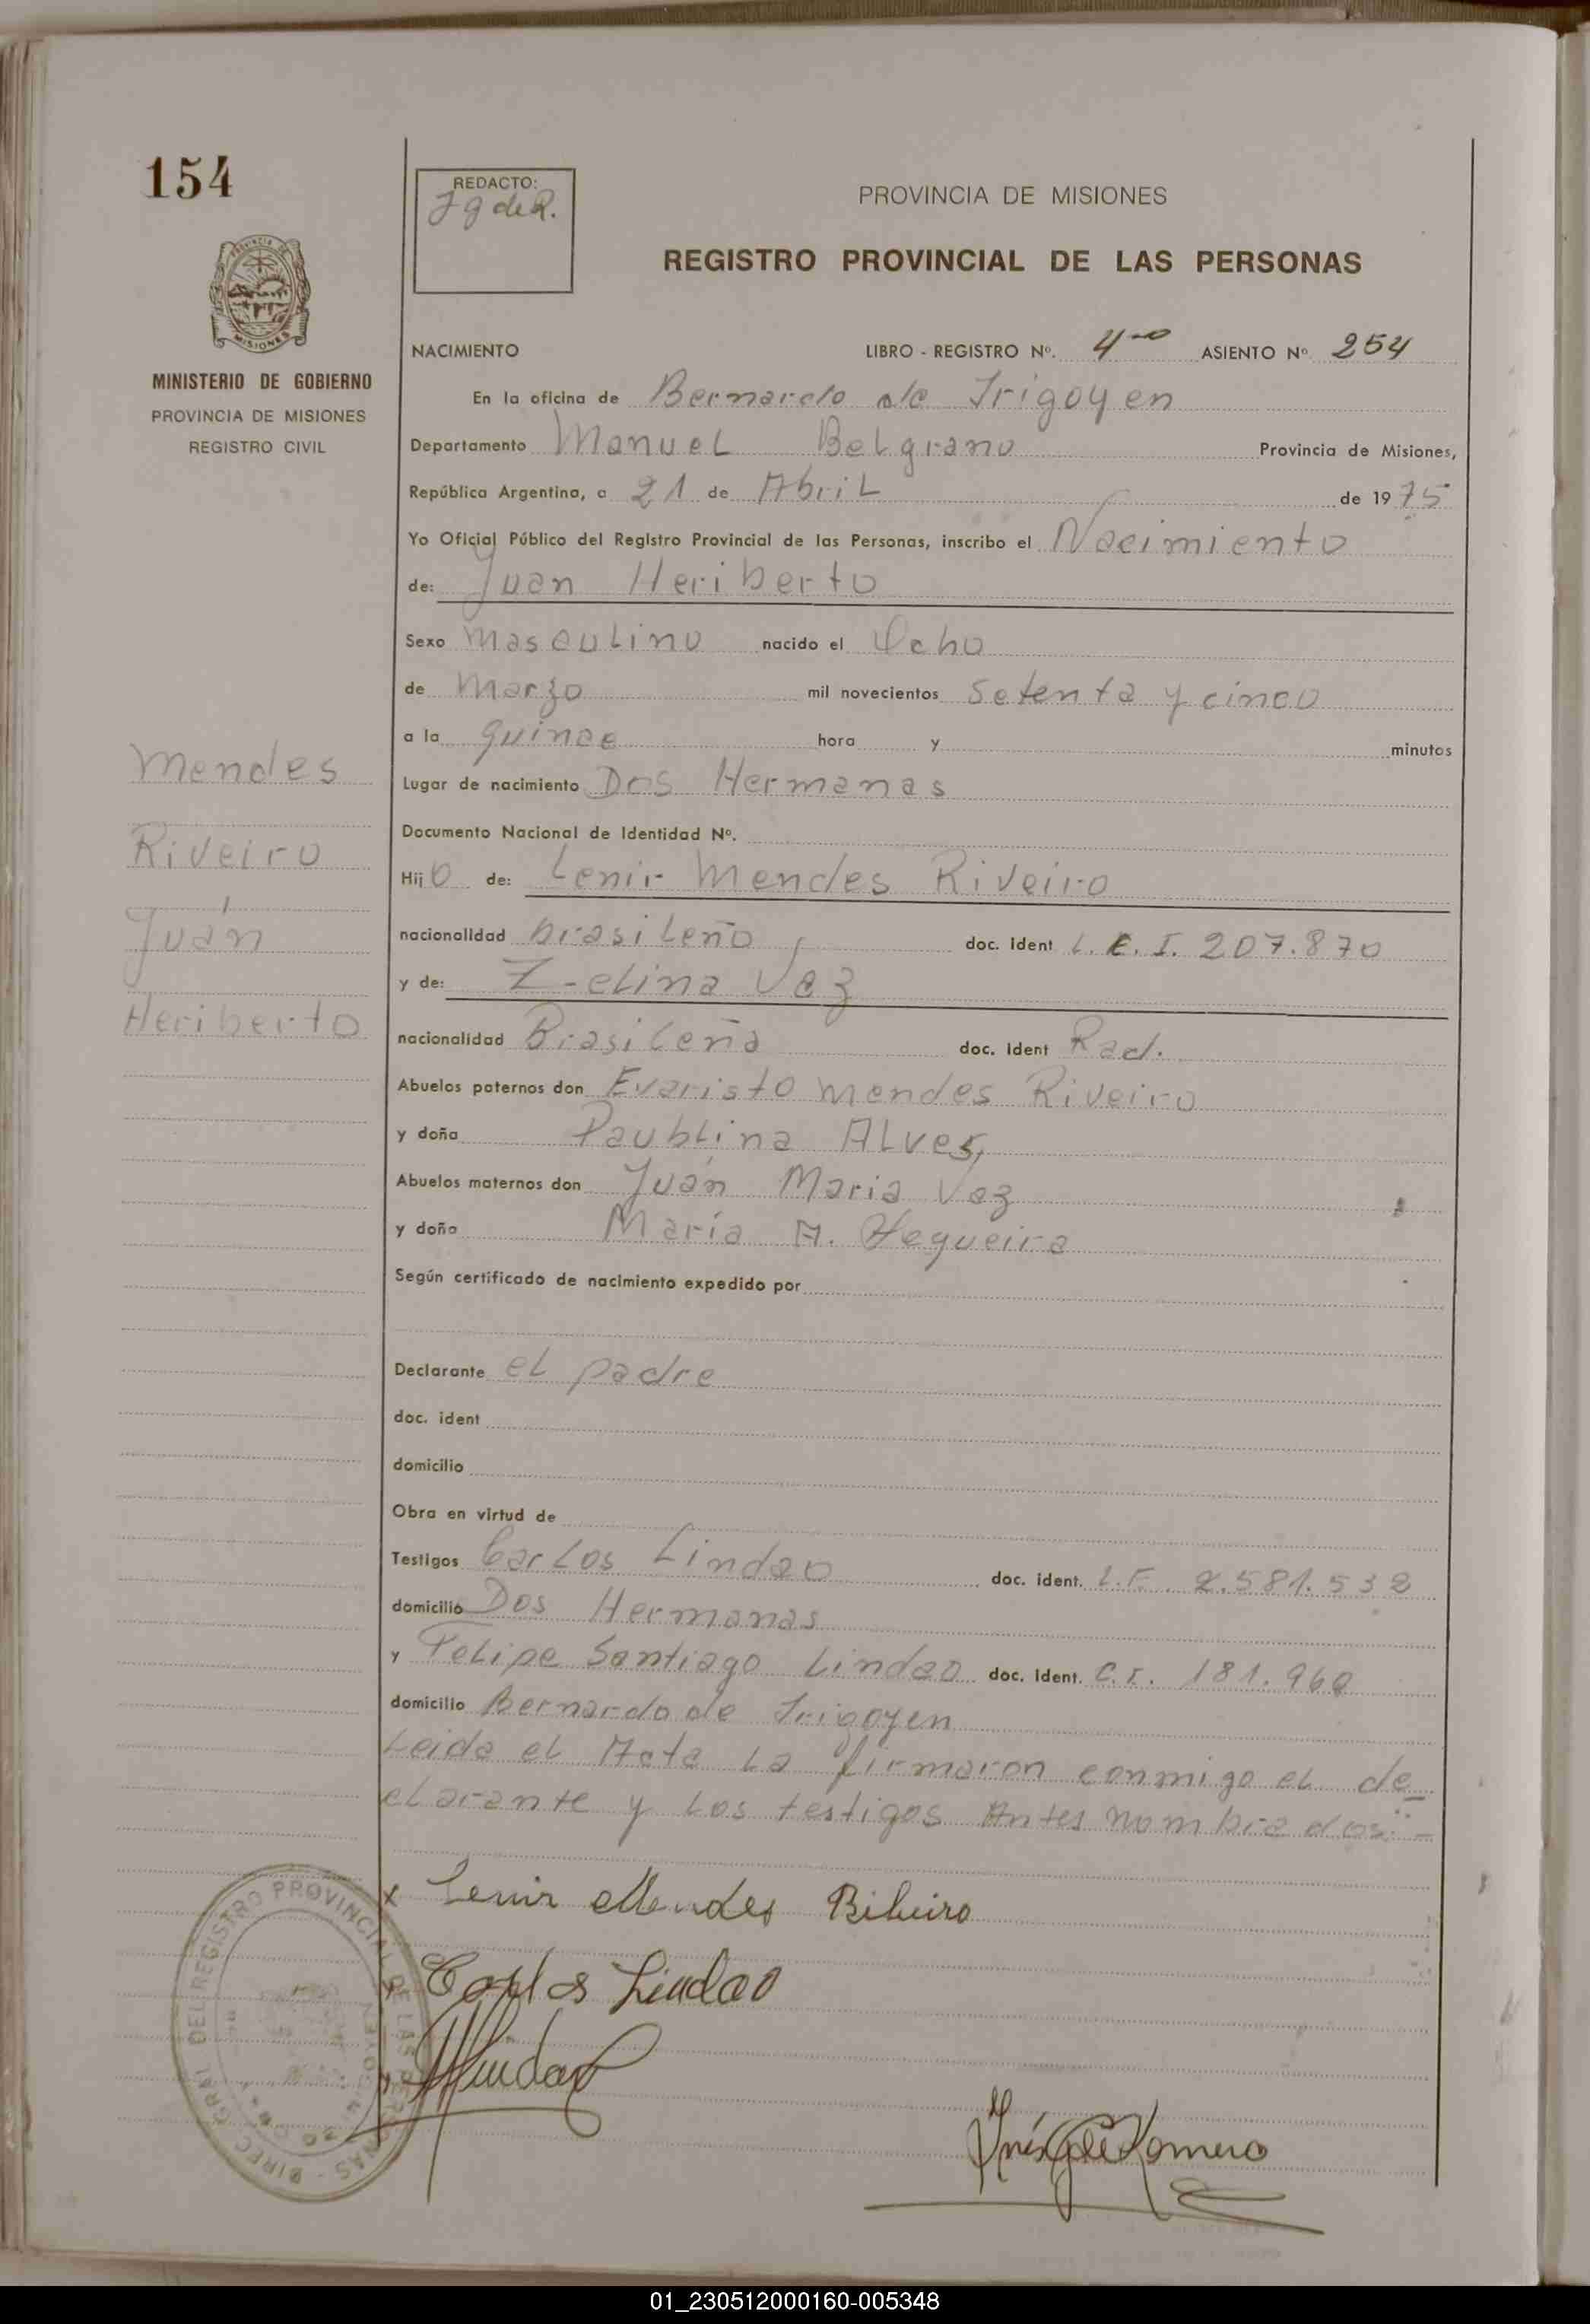 154
REDACTO:
J g de R.
PROVINCIA DE MISIONES
REGISTRO PROVINCIAL DE LAS PERSONAS
MISIONES
MINISTERIO DE GOBIERNO
PROVINCIA DE MISIONES
REGISTRO CIVIL
NACIMIENTO LIBRO - REGISTRO Nº. 4to ASIENTO Nº 254
En la oficina de Bernardo de Irigoyen
Departamento Manuel Belgrano Provincia de Misiones,
República Argentina, a 21 de Abril de 1975
Yo Oficial Público del Registro Provincial de las Personas, inscribo el Nacimiento
de: Juan Heriberto
Sexo masculino nacido el Ocho
de Marzo mil novecientos setenta y cinco
a la quince hora y minutos
Lugar de nacimiento Dos Hermanas
Documento Nacional de Identidad Nº.
Hijo de: Lenir Mendes Riveiro
nacionalidad brasileño doc. ident L. E. I. 207.870
y de: Zelina Vaz
nacionalidad Brasileña doc. Ident Rad.
Abuelos paternos don Evaristo Mendes Riveiro
y doña Paublina Alves,
Abuelos maternos don Juán Maria Vaz
y doña María A. Hegueira
Según certificado de nacimiento expedido por
Declarante el padre
doc. ident
domicilio
Obra en virtud de
Testigos Carlos Lindao doc. ident. L.E. 2.581.532
domicilio Dos Hermanas
y Felipe Santiago Lindao doc. Ident. C.I. 181.960
domicilio Bernardo de Irigoyen
Leida el Acta la firmaron conmigo el de
clarante y los testigos Antes nombrados.-
Mendes
Riveiro
Juán
Heriberto
x Lenir Mendes Ribeiro
x Carlos Lindao
Lindao
Inés G de Romero
DIREC. GRAL DEL REGISTRO PROVINCIAL DE LAS PERSONAS
01_230512000160-005348